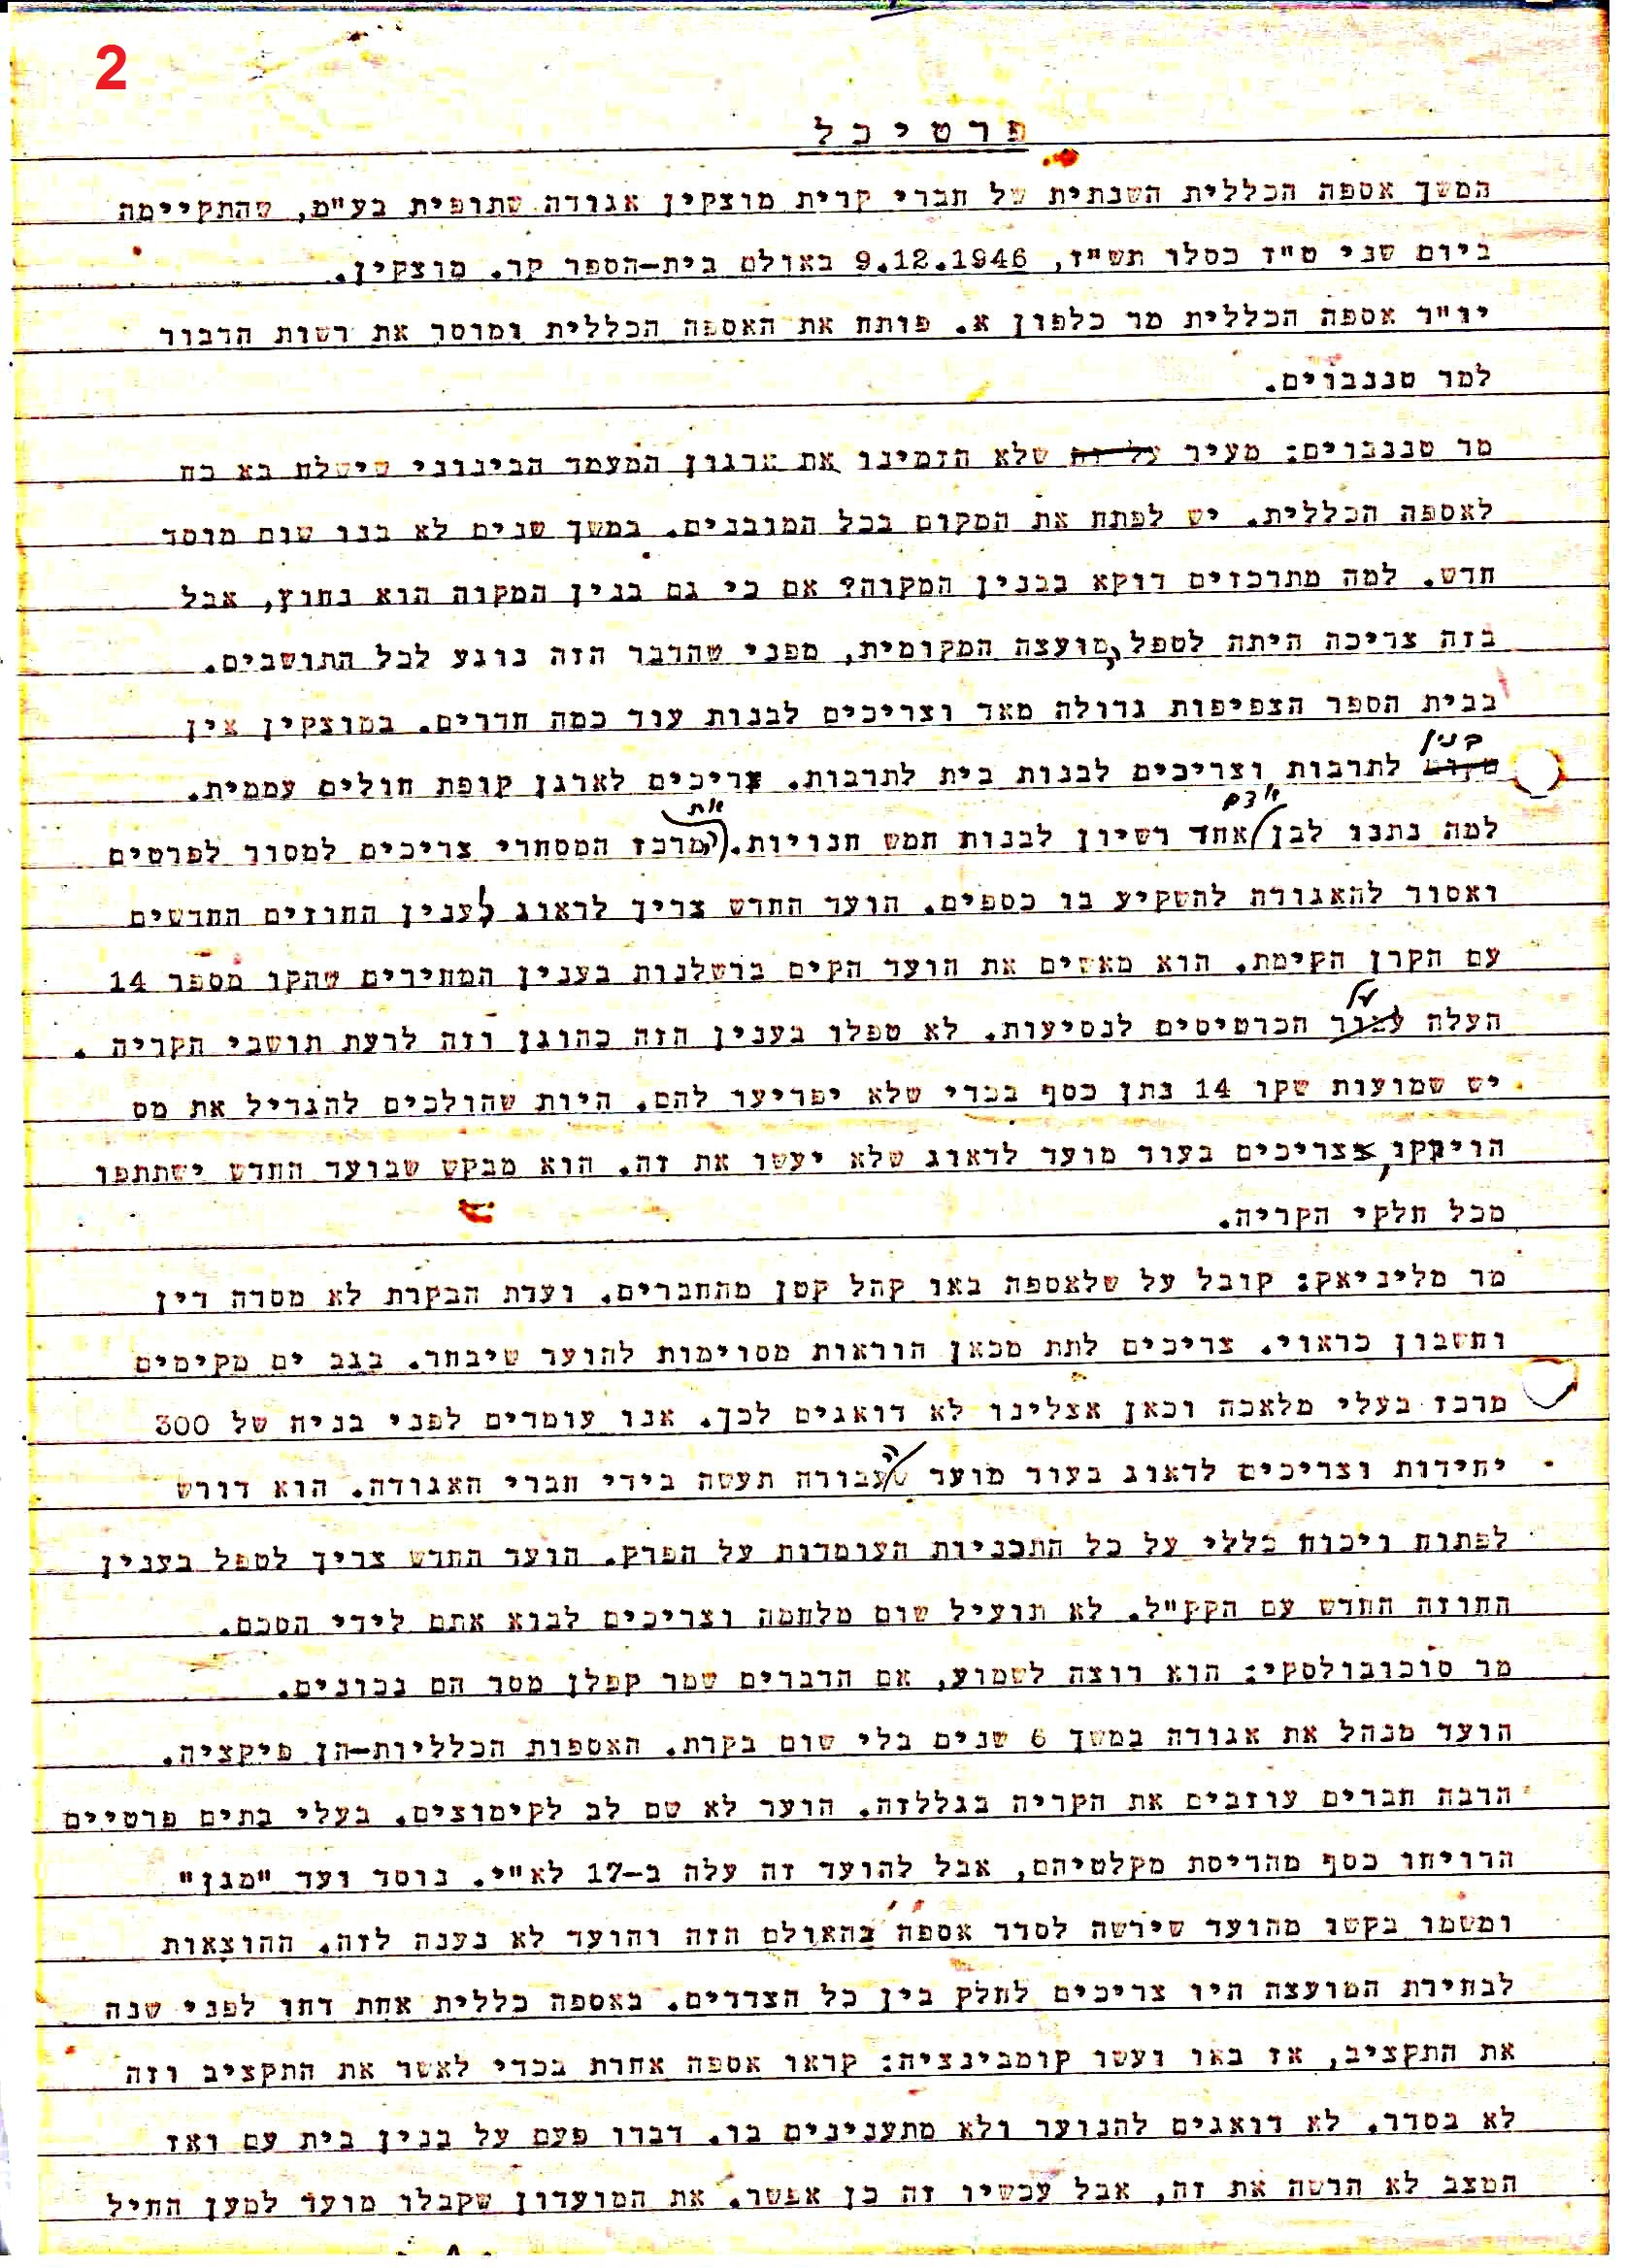 2
פרטיכל
המשך אספה הכללית השנתית של חברי קרית מוצקין אגודה שתופית בע"מ, שהתקיימה
ביום שני ט"ז כסלו תש"ז, 9.12.1946 באולם בית-הספר קר. מוצקין.
יו"ר אספה הכללית מר כלפון א. פותח את האספה הכללית ומוסר את רשות הדבור
למר טננבוים.
מר טננבוים: מעיר על זה שלא הזמינו את ארגון המעמד הבינוני שישלח בא כח
לאספה הכללית. יש לפתח את המקום בכל המובנים. במשך שנים לא בנו שום מוסד
חדש. למה מתרכזים דוקא בבנין המקוה? אם כי גם בנין המקוה הוא נחוץ, אבל
בזה צריכה היתה לטפל מועצה המקומית, מפני שהדבר הזה נוגע לכל התושבים.
בבית הספר הצפיפות גדולה מאד וצריכים לבנות עוד כמה חדרים. במוצקין אין
בנין
מקום לתרבות וצריכים לבנות בית לתרבות. צריכים לארגן קופת חולים עממית.
אדם את
למה נתנו לבן אחד רשיון לבנות חמש חנויות. המרכז המסחרי צריכים למסור לפרטים
ואסור להאגודה להשקיע בו כספים. הועד החדש צריך לדאוג לענין החוזים החדשים
עם הקרן הקימת. הוא מאשים את הועד הקים ברשלנות בענין המחירים שהקו מספר 14
העלה עבור הכרטיסים לנסיעות. לא טפלו בענין הזה כהוגן וזה לרעת תושבי הקריה.
יש שמועות שקו 14 נתן כסף בכדי שלא יפריעו להם. היות שהולכים להגדיל את מס
הוירקו, צריכים בעוד מועד לדאוג שלא יעשו את זה. הוא מבקש שבועד החדש ישתתפו
מכל חלקי הקריה.
מר מליניאק: קובל על שלאספה באו קהל קטן מהחברים. ועדת הבקרת לא מסרה דין
וחשבון כראוי. צריכים לתת מכאן הוראות מסוימות להועד שיבחר. בנב ים מקימים
מרכז בעלי מלאכה וכאן אצלינו לא דואגים לכך. אנו עומדים לפני בניה של 300
יחידות וצריכים לדאוג בעוד מועד שהעבודה תעשה בידי חברי האגודה. הוא דורש
לפתוח ויכוח כללי על כל התכניות העומדות על הפרק. הועד החדש צריך לטפל בענין
החוזה החדש עם הקק"ל. לא תועיל שום מלחמה וצריכים לבוא אתם לידי הסכם.
מר סוכובולסקי: הוא רוצה לשמוע, אם הדברים שמר קפלן מסר הם נכונים.
הועד מנהל את אגודה במשך 6 שנים בלי שום בקרת. האספות הכלליות-הן פיקציה.
הרבה חברים עוזבים את הקריה בגללזה. הועד לא שם לב לקימוצים. בעלי בתים פרטיים
הרויחו כסף מהריסת מקלטיהם, אבל להועד זה עלה ב-17 לא"י. נוסד ועד "מגן"
ומשמו בקשו מהועד שירשה לסדר אספה בהאולם הזה והועד לא נענה לזה. ההוצאות
לבחירת המועצה היו צריכים לחלק בין כל הצדדים. באספה כללית אחת דחו לפני שנה
את התקציב, אז באו ועשו קומבינציה: קראו אספה אחרת בכדי לאשר את התקציב וזה
לא בסדר. לא דואגים להנוער ולא מתענינים בו. דברו פעם על בנין בית עם ואז
המצב לא הרשה את זה, אבל עכשיו זה כן אפשר. את המועדון שקבלו מועד למען החיל